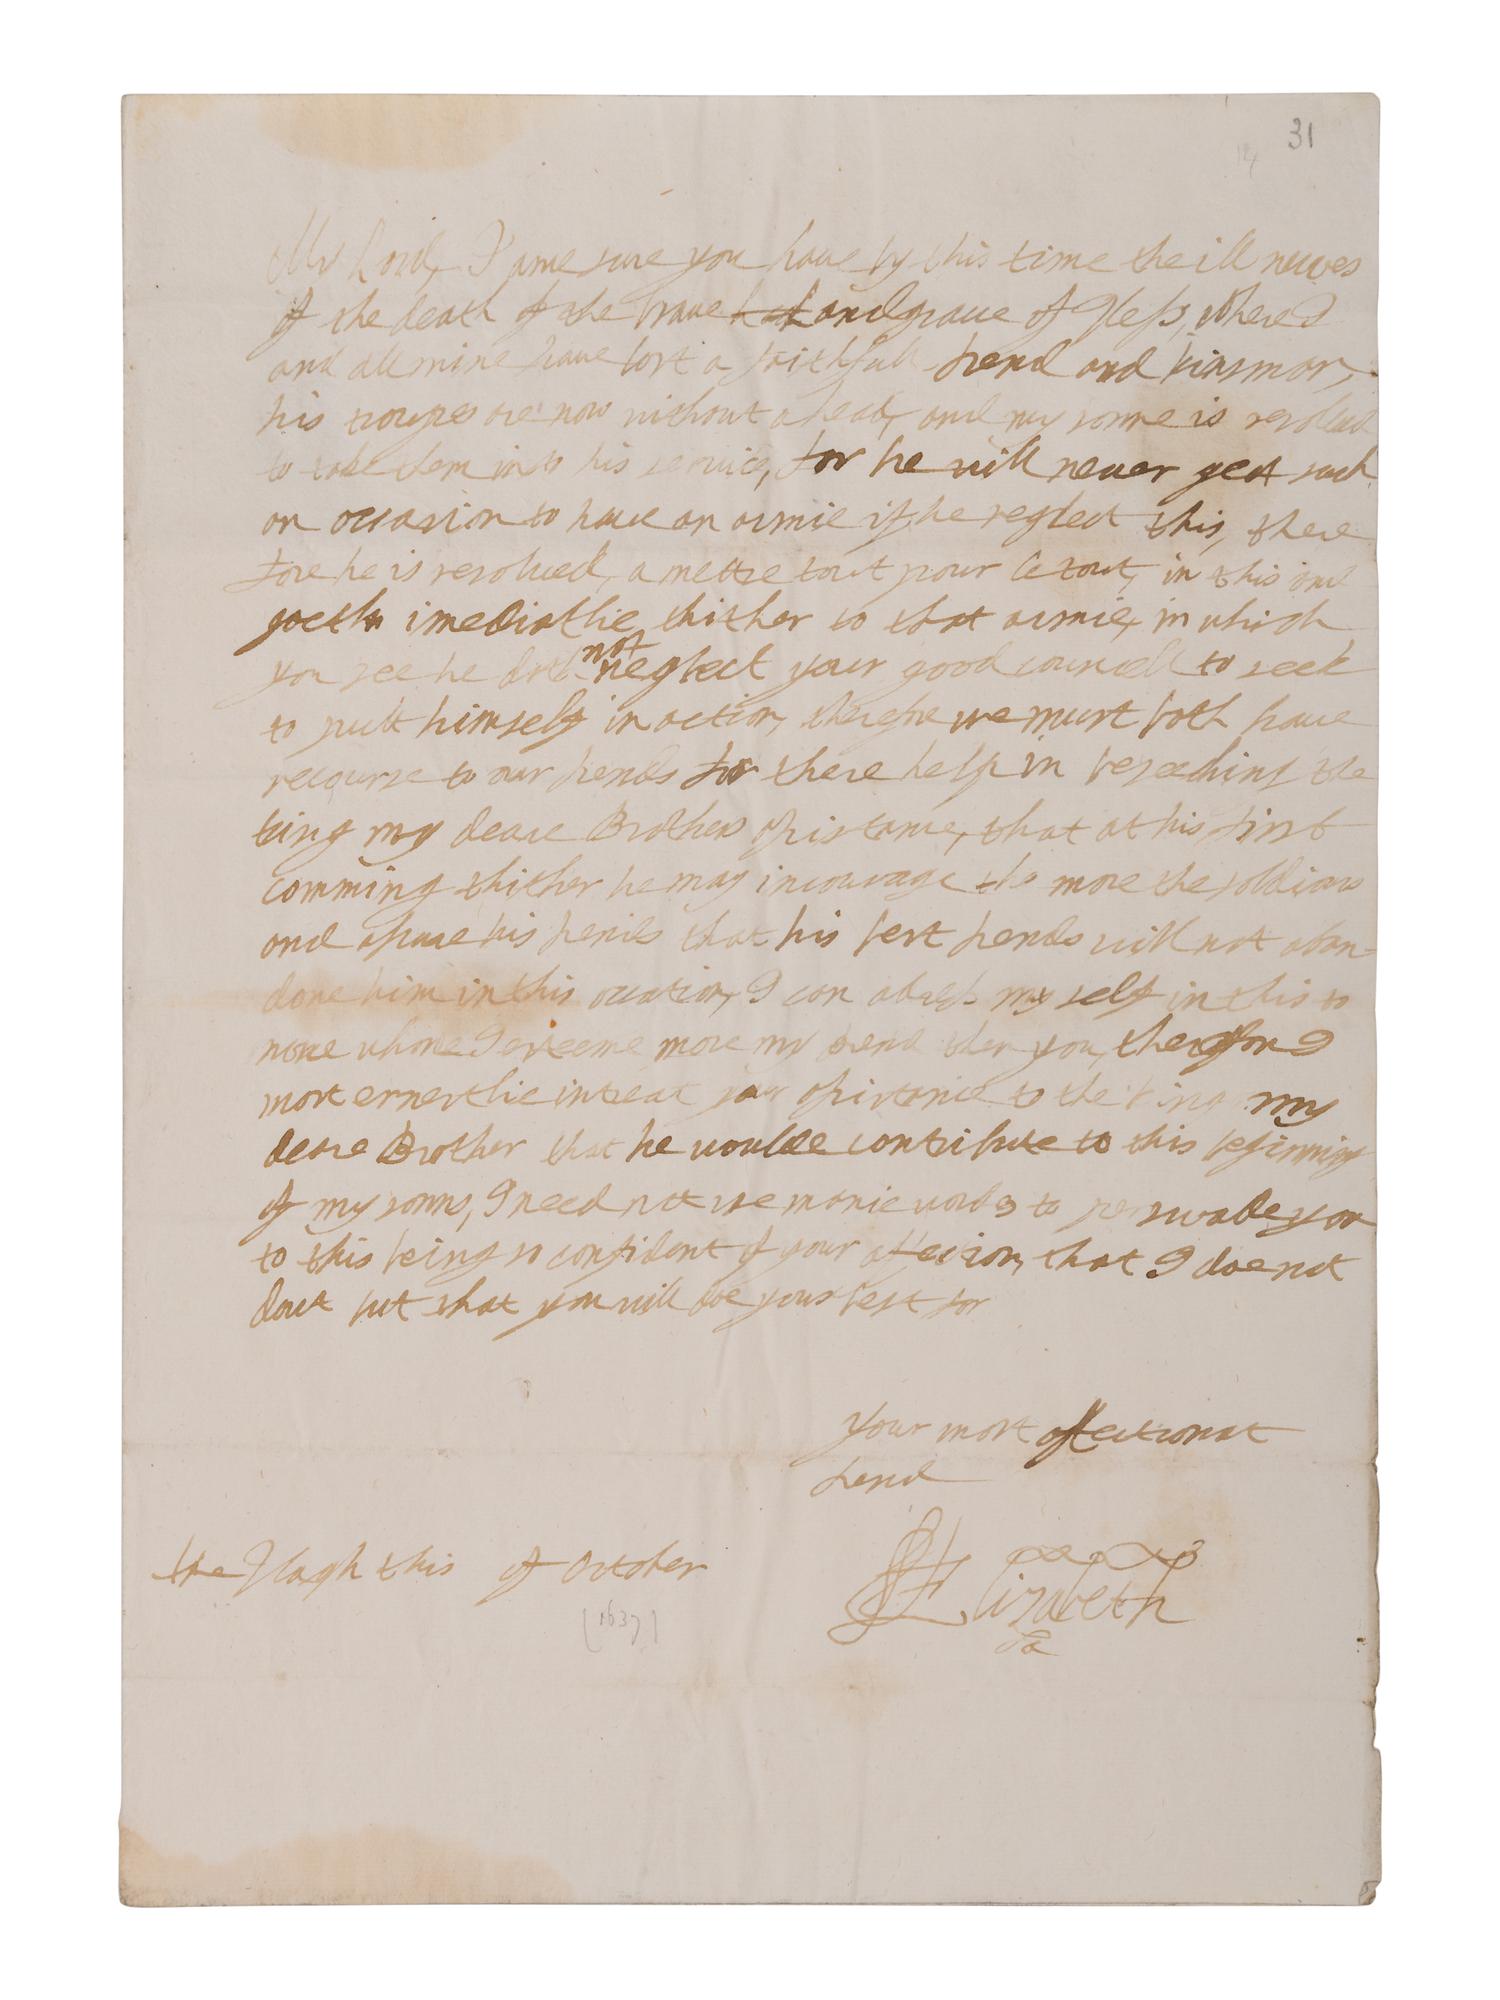 31
14
My Lord, I ame sure you haue by this time the ill newes
of the death of the braue landgraue of Hess, where I
and all mine haue lost a faithfull frend and kinsman,
his troupes are now without a head, and my sonne is resolued
to take them into his seruice, for he will neuer gett such
an occasion to haue an armie if he neglect this, there
fore he is resolued, a mettre tout pour le tout, in this and
goeth imediatlie thither to that armie, in which
you see he doth not neglect your good councell to seek
to putt himself in action, therefore we must both haue
recourse to our frends for there help in beseeching the
king my deare Brothers assistance, that at his first
comming thither he may incourage the more the soldiers
and assure his frends that his best frends will not aban-
done him in this occation, I can adress my self in this to
none whome I esteeme more my frend then you, therefore I
most ernestlie intreat your assistance to the king my
deare Brother that he woulde contribute to this beginning
of my sonns, I need not use manie words to perswade you
to this being so confident of your affection, that I doe not
dout but that you will doe your best for
Your most affectionat
frend
Elizabeth
the Hagh this of October
(1637)